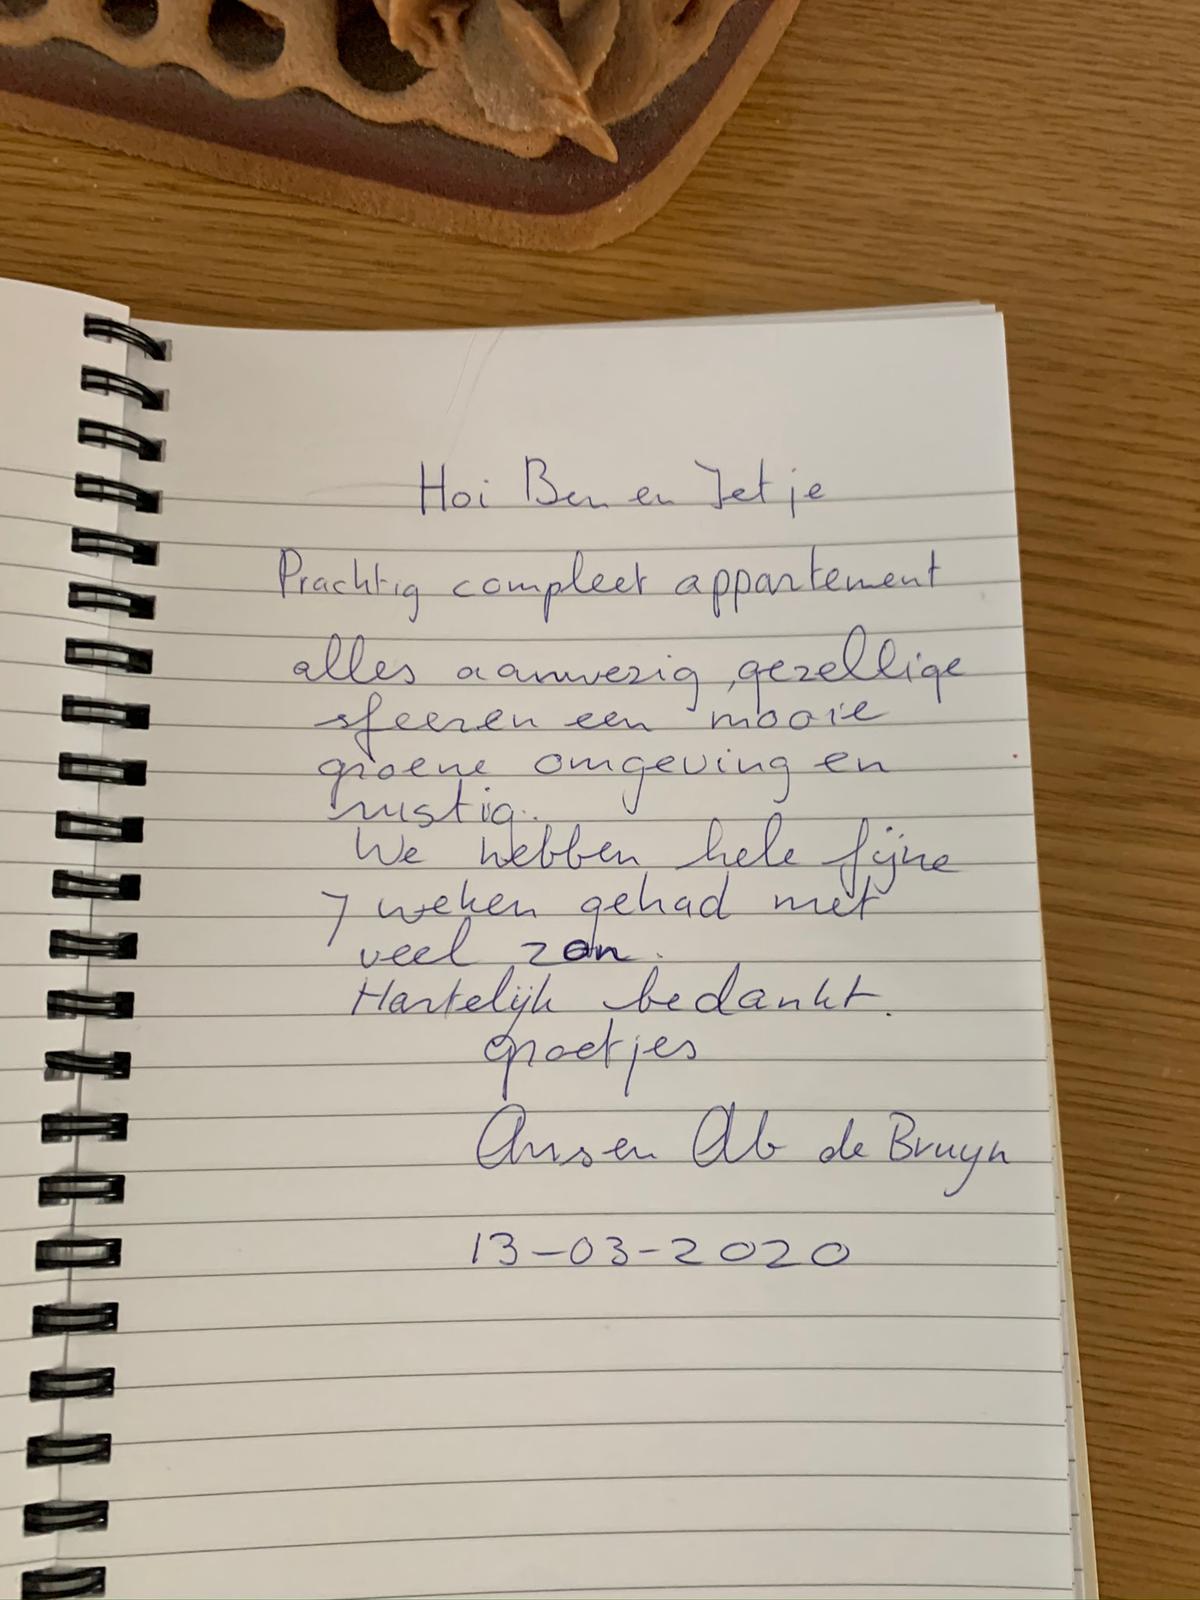 Hoi Ben en Jetje
Prachtig compleet appartement
alles aanwezig, gezellige
sfeer en een mooie
groene omgeving en
rustig.
We hebben hele fijne
7 weken gehad met
veel zon.
Hartelijk bedankt.
groetjes
Ans en Ab de Bruyn
13-03-2020